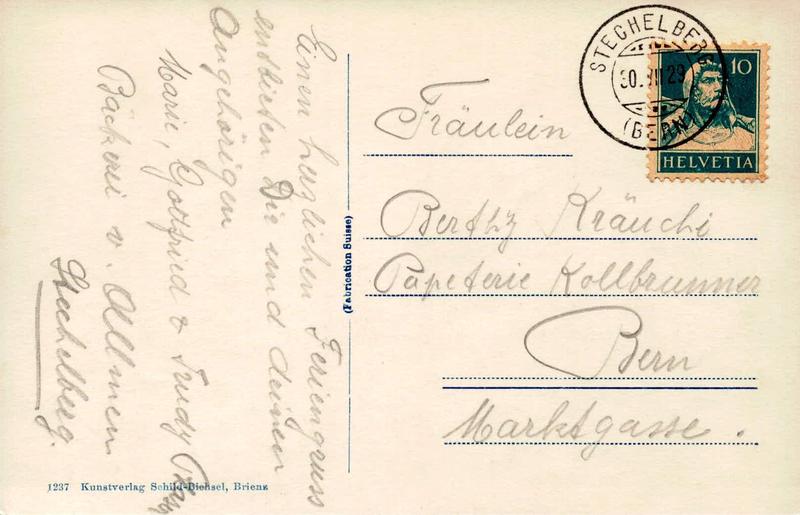 Einen herzlichen Feriengruss
entbieten Die und deinen
Angehörigen
Marie, Gottfried & Trudy
Bäckerei v. Allmen
Stechelberg.
(Fabrication Suisse)
STECHELBERG
30. VII 29
(BERN)
10
HELVETIA
Fräulein
Berthy Kräuchi
Papeterie Kollbrunner
Bern
Marktgasse.
1237 Kunstverlag Schild-Bichsel, Brienz